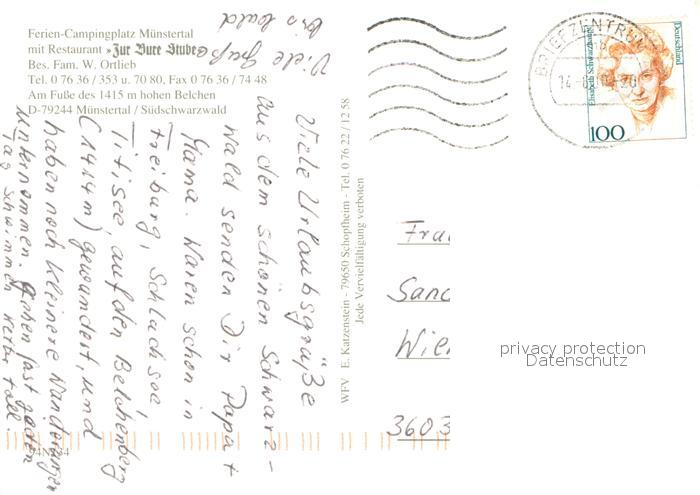 Ferien-Campingplatz Münstertal
mit Restaurant »Zur Bure Stube«
Bes. Fam. W. Ortlieb
Tel. 0 76 36 / 353 u. 70 80, Fax 0 76 36 / 74 48
Am Fuße des 1415 m hohen Belchen
D-79244 Münstertal / Südschwarzwald
Viele Urlaubsgrüße
aus dem schönen Schwarz-
wald senden Dir Papa +
Mama. Waren schon in
Freiburg, Schluchsee,
Titisee, auf den Belchenberg
(1414 m) gewandert, und
haben noch kleinere Wanderungen
unternommen. Gehen fast jeden
Tag schwimmen. Wetter toll.
Viele Grüße
bis bald
WFV E. Katzenstein - 79650 Schopfheim - Tel. 0 76 22 / 12 58
Jede Vervielfältigung verboten
BRIEFZENTRUM
Deutschland
Elisabeth Schwarzhaupt
100
Frau
Sand
Wie
3603
privacy protection
Datenschutz